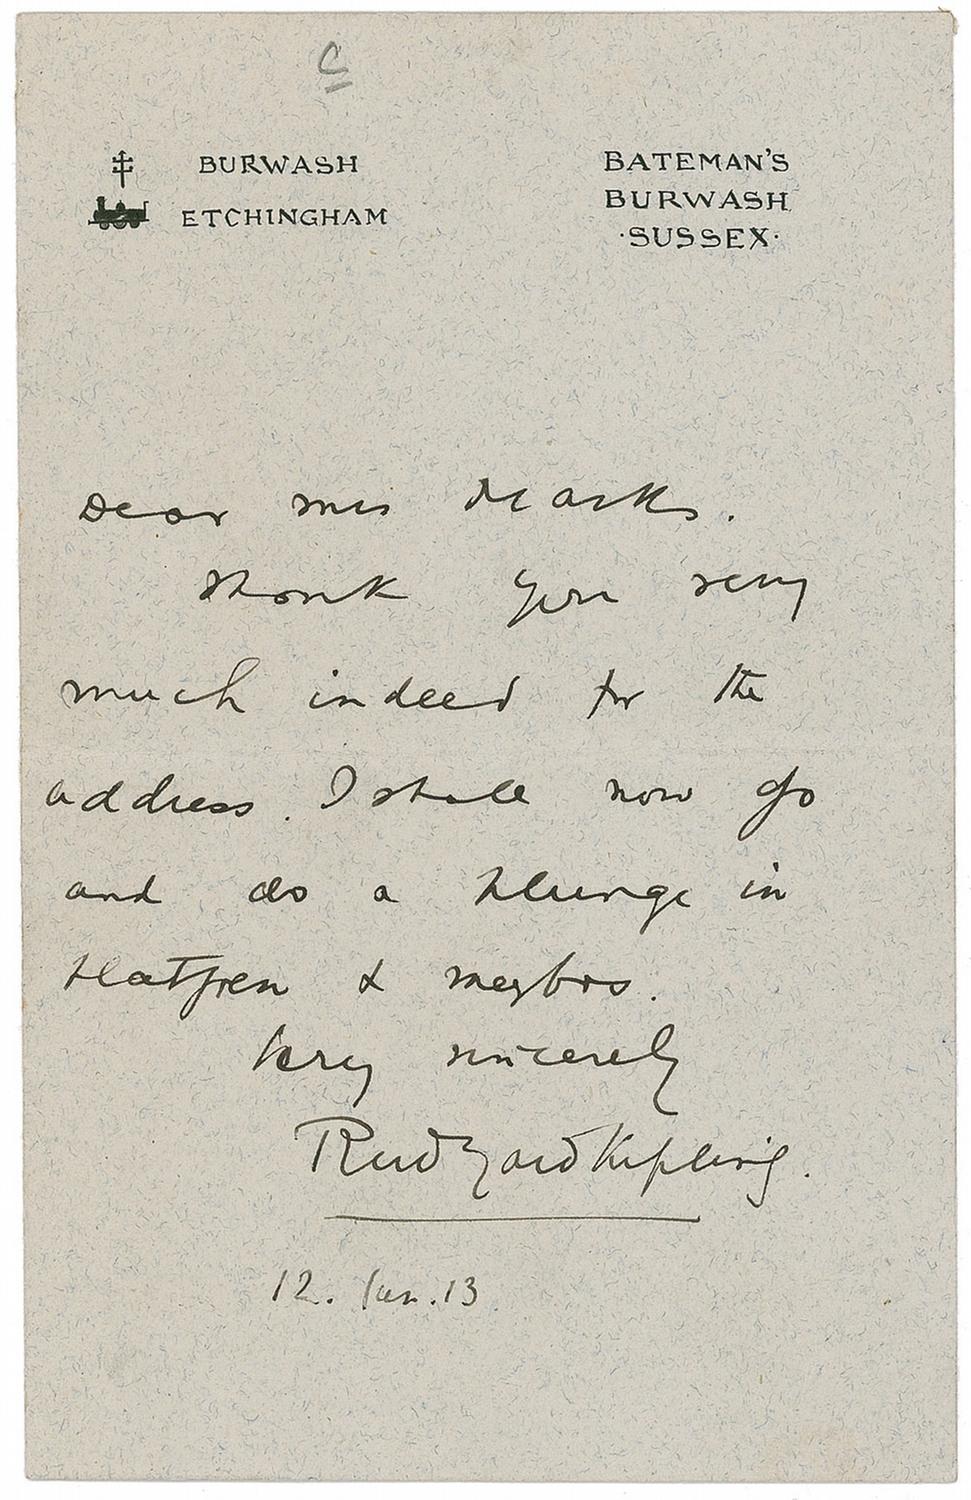 C
BURWASH
ETCHINGHAM
BATEMAN'S
BURWASH
·SUSSEX·
Dear Mrs Marks.
Thank you very
much indeed for the
address. I shall now go
and do a plunge in
&
Very sincerely
Rudyard Kipling.
12. Jan. 13